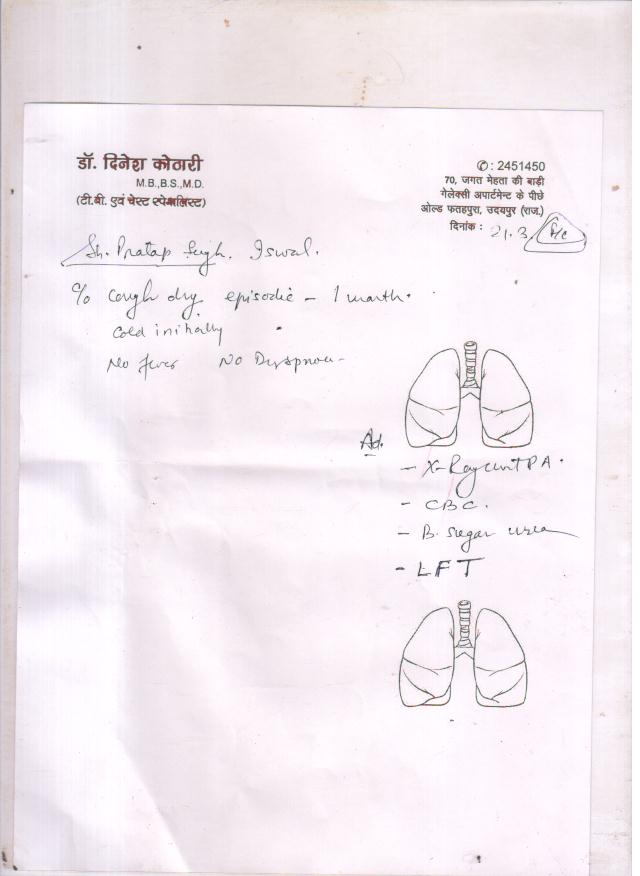 डॉ. दिनेश कोठारी
M.B.,B.S.,M.D.
(टी.बी. एवं चेस्ट स्पेशलिस्ट)
✆: 2451450
70, जगत मेहता की बाड़ी
गेलेक्सी अपार्टमेन्ट के पीछे
ओल्ड फतहपुरा, उदयपुर (राज.)
दिनांक : 21.3
Sh. Pratap Singh. Iswal.
C/o Cough dry episodic - 1 month.
Cold initially
No fever No Dyspnoea
Ad.
- X-Ray chest PA.
- CBC.
- B. sugar urea
- LFT